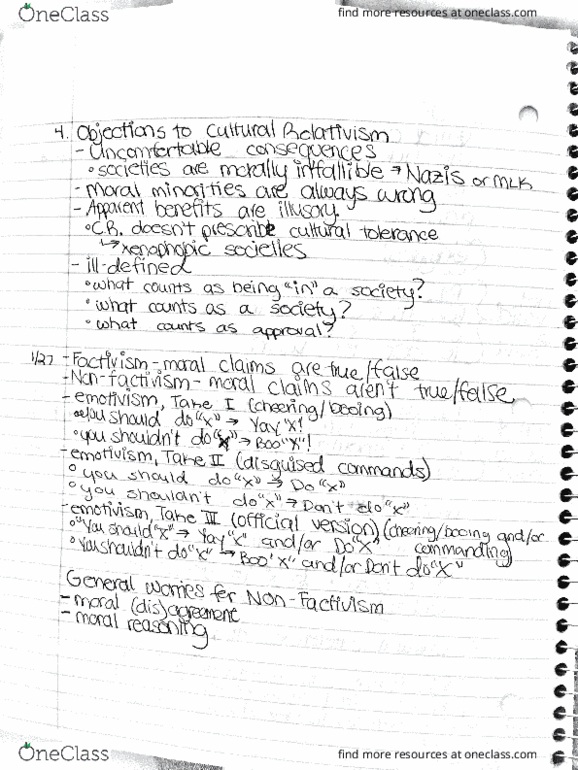 OneClass
find more resources at oneclass.com
4. Objections to Cultural Relativism
- Uncomfortable consequences
° societies are morally infallible → Nazis or MLK
- moral minorities are always wrong
- Apparent benefits are illusory.
° C.R. doesn't prescribe cultural tolerance
↳ xenophobic societies
- ill-defined
° what counts as being "in" a society?
° what counts as a society?
° what counts as approval?
1/27 - Factivism - moral claims are true/false
- Non-factivism - moral claims aren't true/false
- emotivism, Take I (cheering/booing)
° you should do "x" → Yay "X"!
° you shouldn't do "x" → Boo "X"!
- emotivism, Take II (disguised commands)
° you should do "x" → Do "x"
° you shouldn't do "x" → Don't do "x"
- emotivism, Take III (official version) (cheering/booing and/or commanding)
° "You should "x" → Yay "X" and/or Do "X"
° You shouldn't do "x" ↳ Boo "X" and/or Don't do "X"
General Worries for Non-Factivism
- moral (dis)agreement
- moral reasoning
OneClass
find more resources at oneclass.com